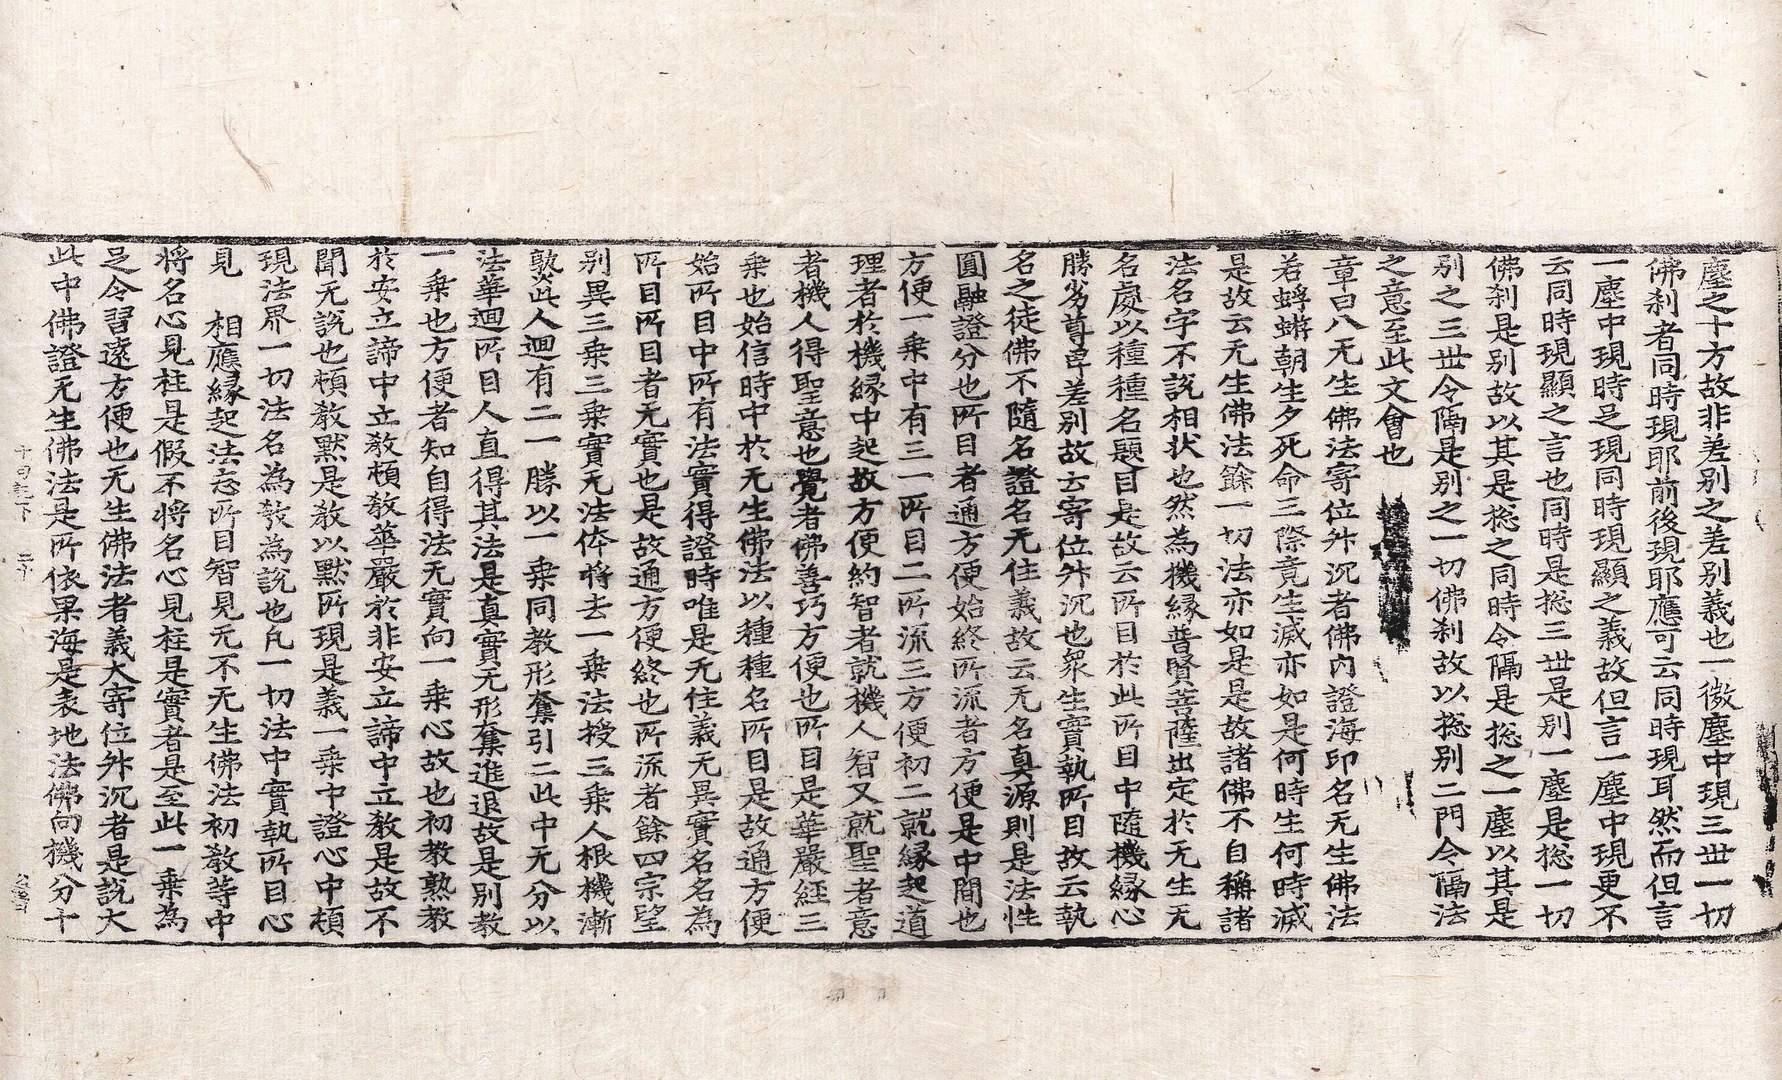 塵之十方故非差別之差別義也一微塵中現三世一切
佛刹者同時現耶前後現耶應可云同時現耳然而但言
一塵中現時㠯現同時現顯之義故但言一塵中現更不
云同時現顯之言也同時是捴三世是別一塵是捴一切
佛刹是別故以其是捴之同時令隔是捴之一塵以其是
別之三世令隔是別之一切佛刹故以捴別二門令隔法
之意至此文會也
章曰八无生佛法寄位外沉者佛內證海印名无生佛法
若蜉蝣朝生夕死命三際竟生滅亦如是何時生何時滅
是故云无生佛法餘一切法亦如是是故諸佛不自稱諸
法名字不說相狀也然為機緣普賢菩薩出定於无生无
名處以種種名題目是故云所目於此所目中隨機緣心
勝劣尊卑差別故云寄位外沉也衆生實執所目故云執
名之徒佛不隨名證名无住義故云无名真源則是法性
圓融證分也所目者通方便始終所流者方便是中間也
方便一乘中有三一所目二所流三方便初二就緣起道
理者於機緣中起故方便約智者就機人智又就聖者意
者機人得聖意也覺者佛善巧方便也所目是華嚴經三
乘也始信時中於无生佛法以種種名所目是故通方便
始所目中所有法實得證時唯是无住義无異實名名為
所目所目者无實也是故通方便終也所流者餘四宗望
別異三乘三乘實无法体將去一乘法授三乘人根機漸
孰此人迴有二一勝以一乘同教形奪引二此中无分以
法華迴所目人直得其法是真實无形奪進退故是別教
一乘也方便者知自得法无實向一乘心故也初教熟教
於安立諦中立教頓教華嚴於非安立諦中立教是故不
聞无說也頓教默是教以默所現是義一乘中證心中頓
現法界一切法名為教為說也凡一切法中實執所目心
見　相應緣起法忘所目智見无不无生佛法初教等中
將名心見柱是假不將名心見柱是實者是至此一乘為
㠯令習遠方便也无生佛法者義大寄位外沉者是說大
此中佛證无生佛法是所依果海是表地法佛向機分十
十句記下　二十